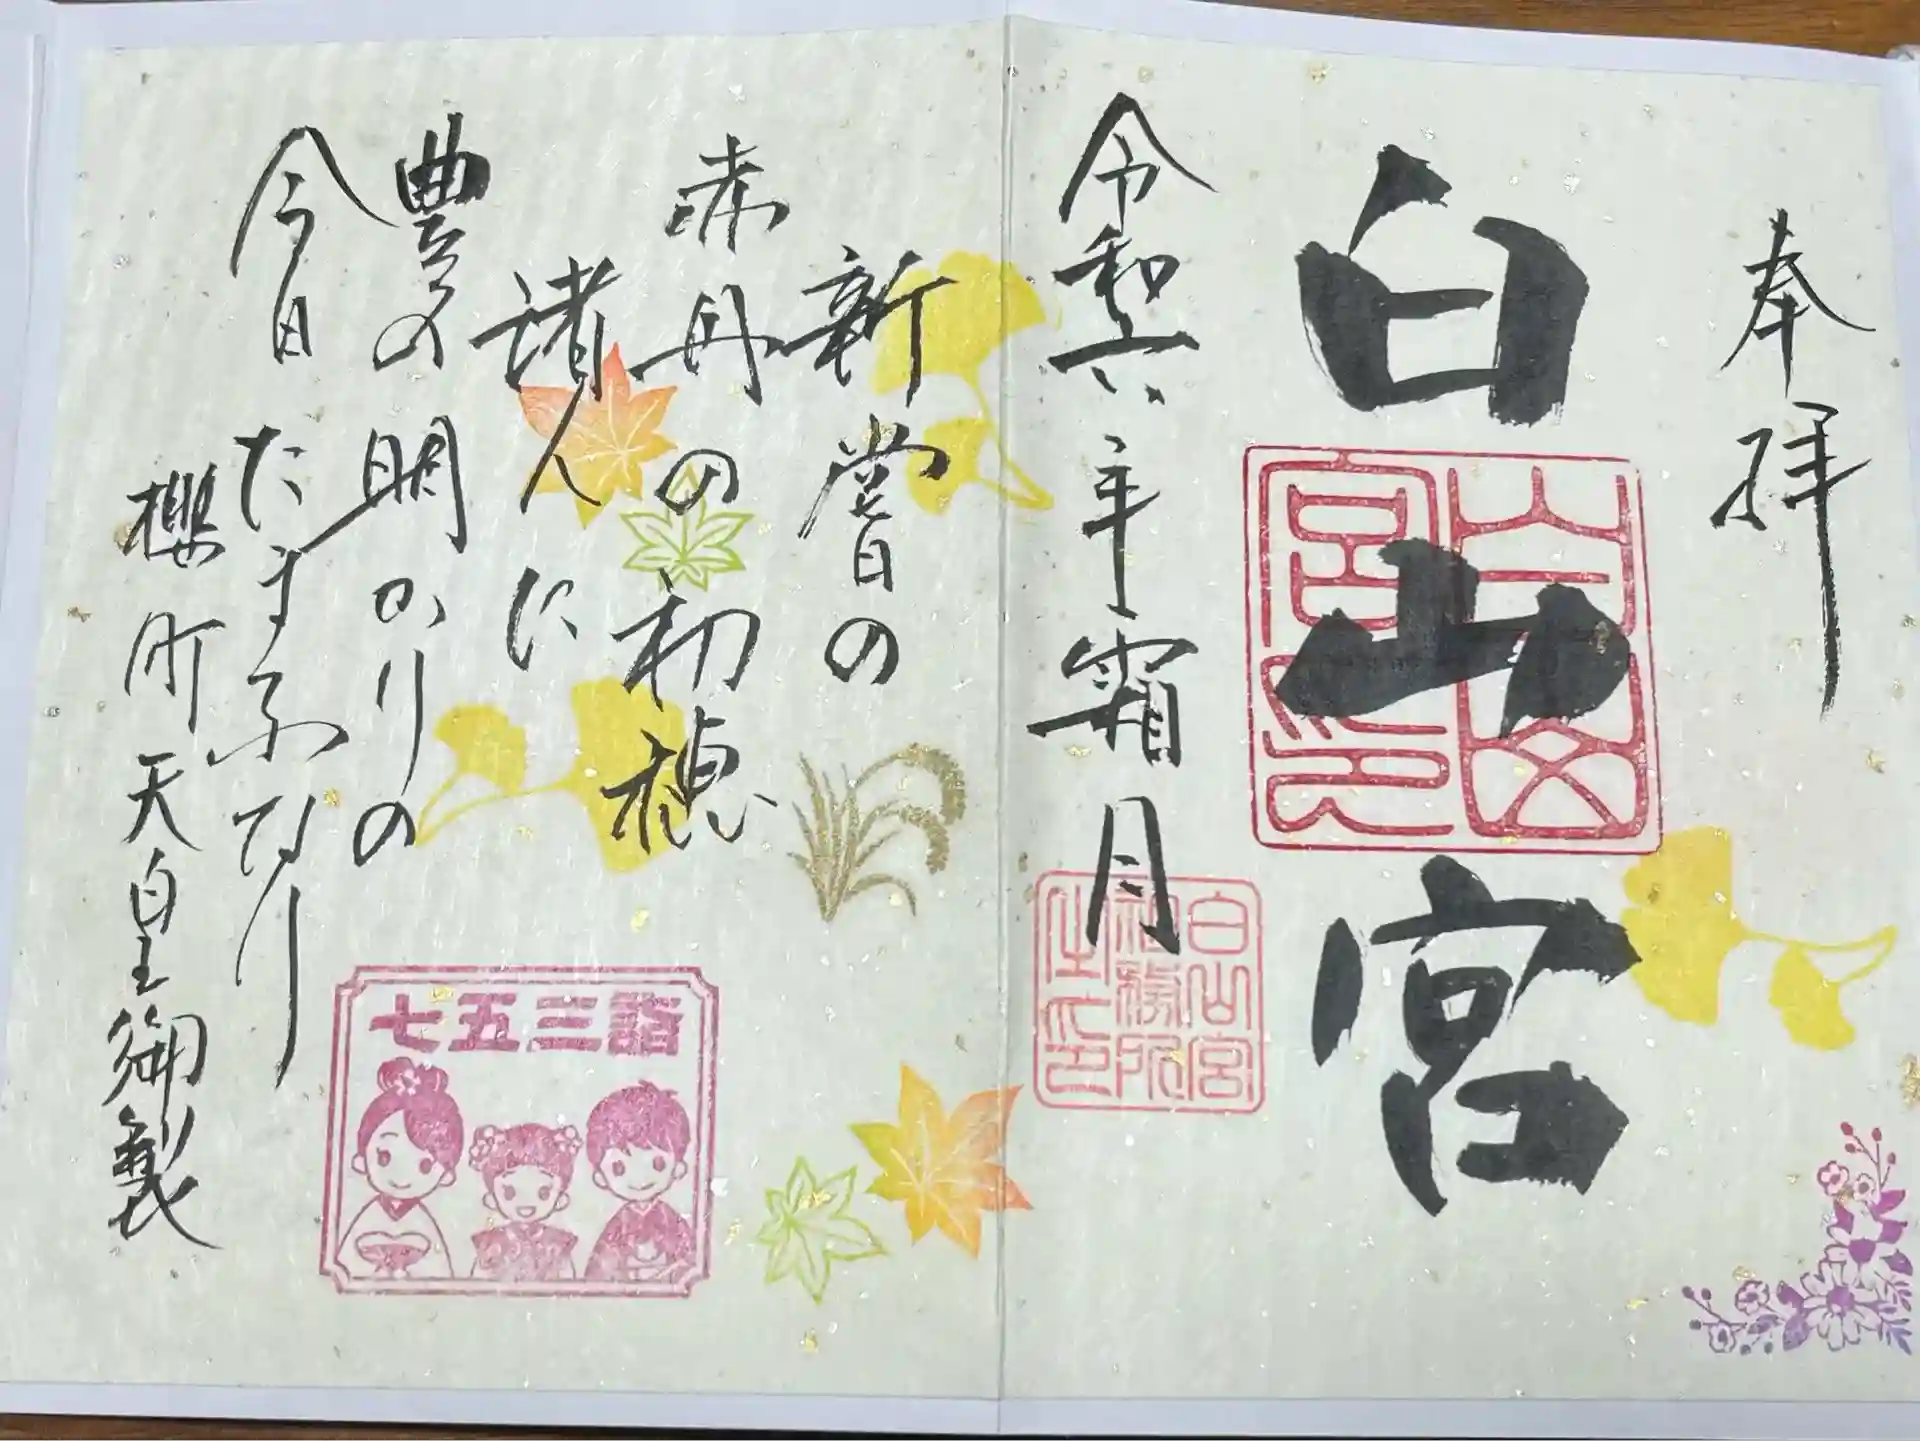 奉拝
白山宮
白山宮印
令和六年霜月
白山宮社務所之印
新嘗の
赤丹の初穂
諸人に
豊の明かりの
今日たまふなり
櫻町天皇御製
七五三詣